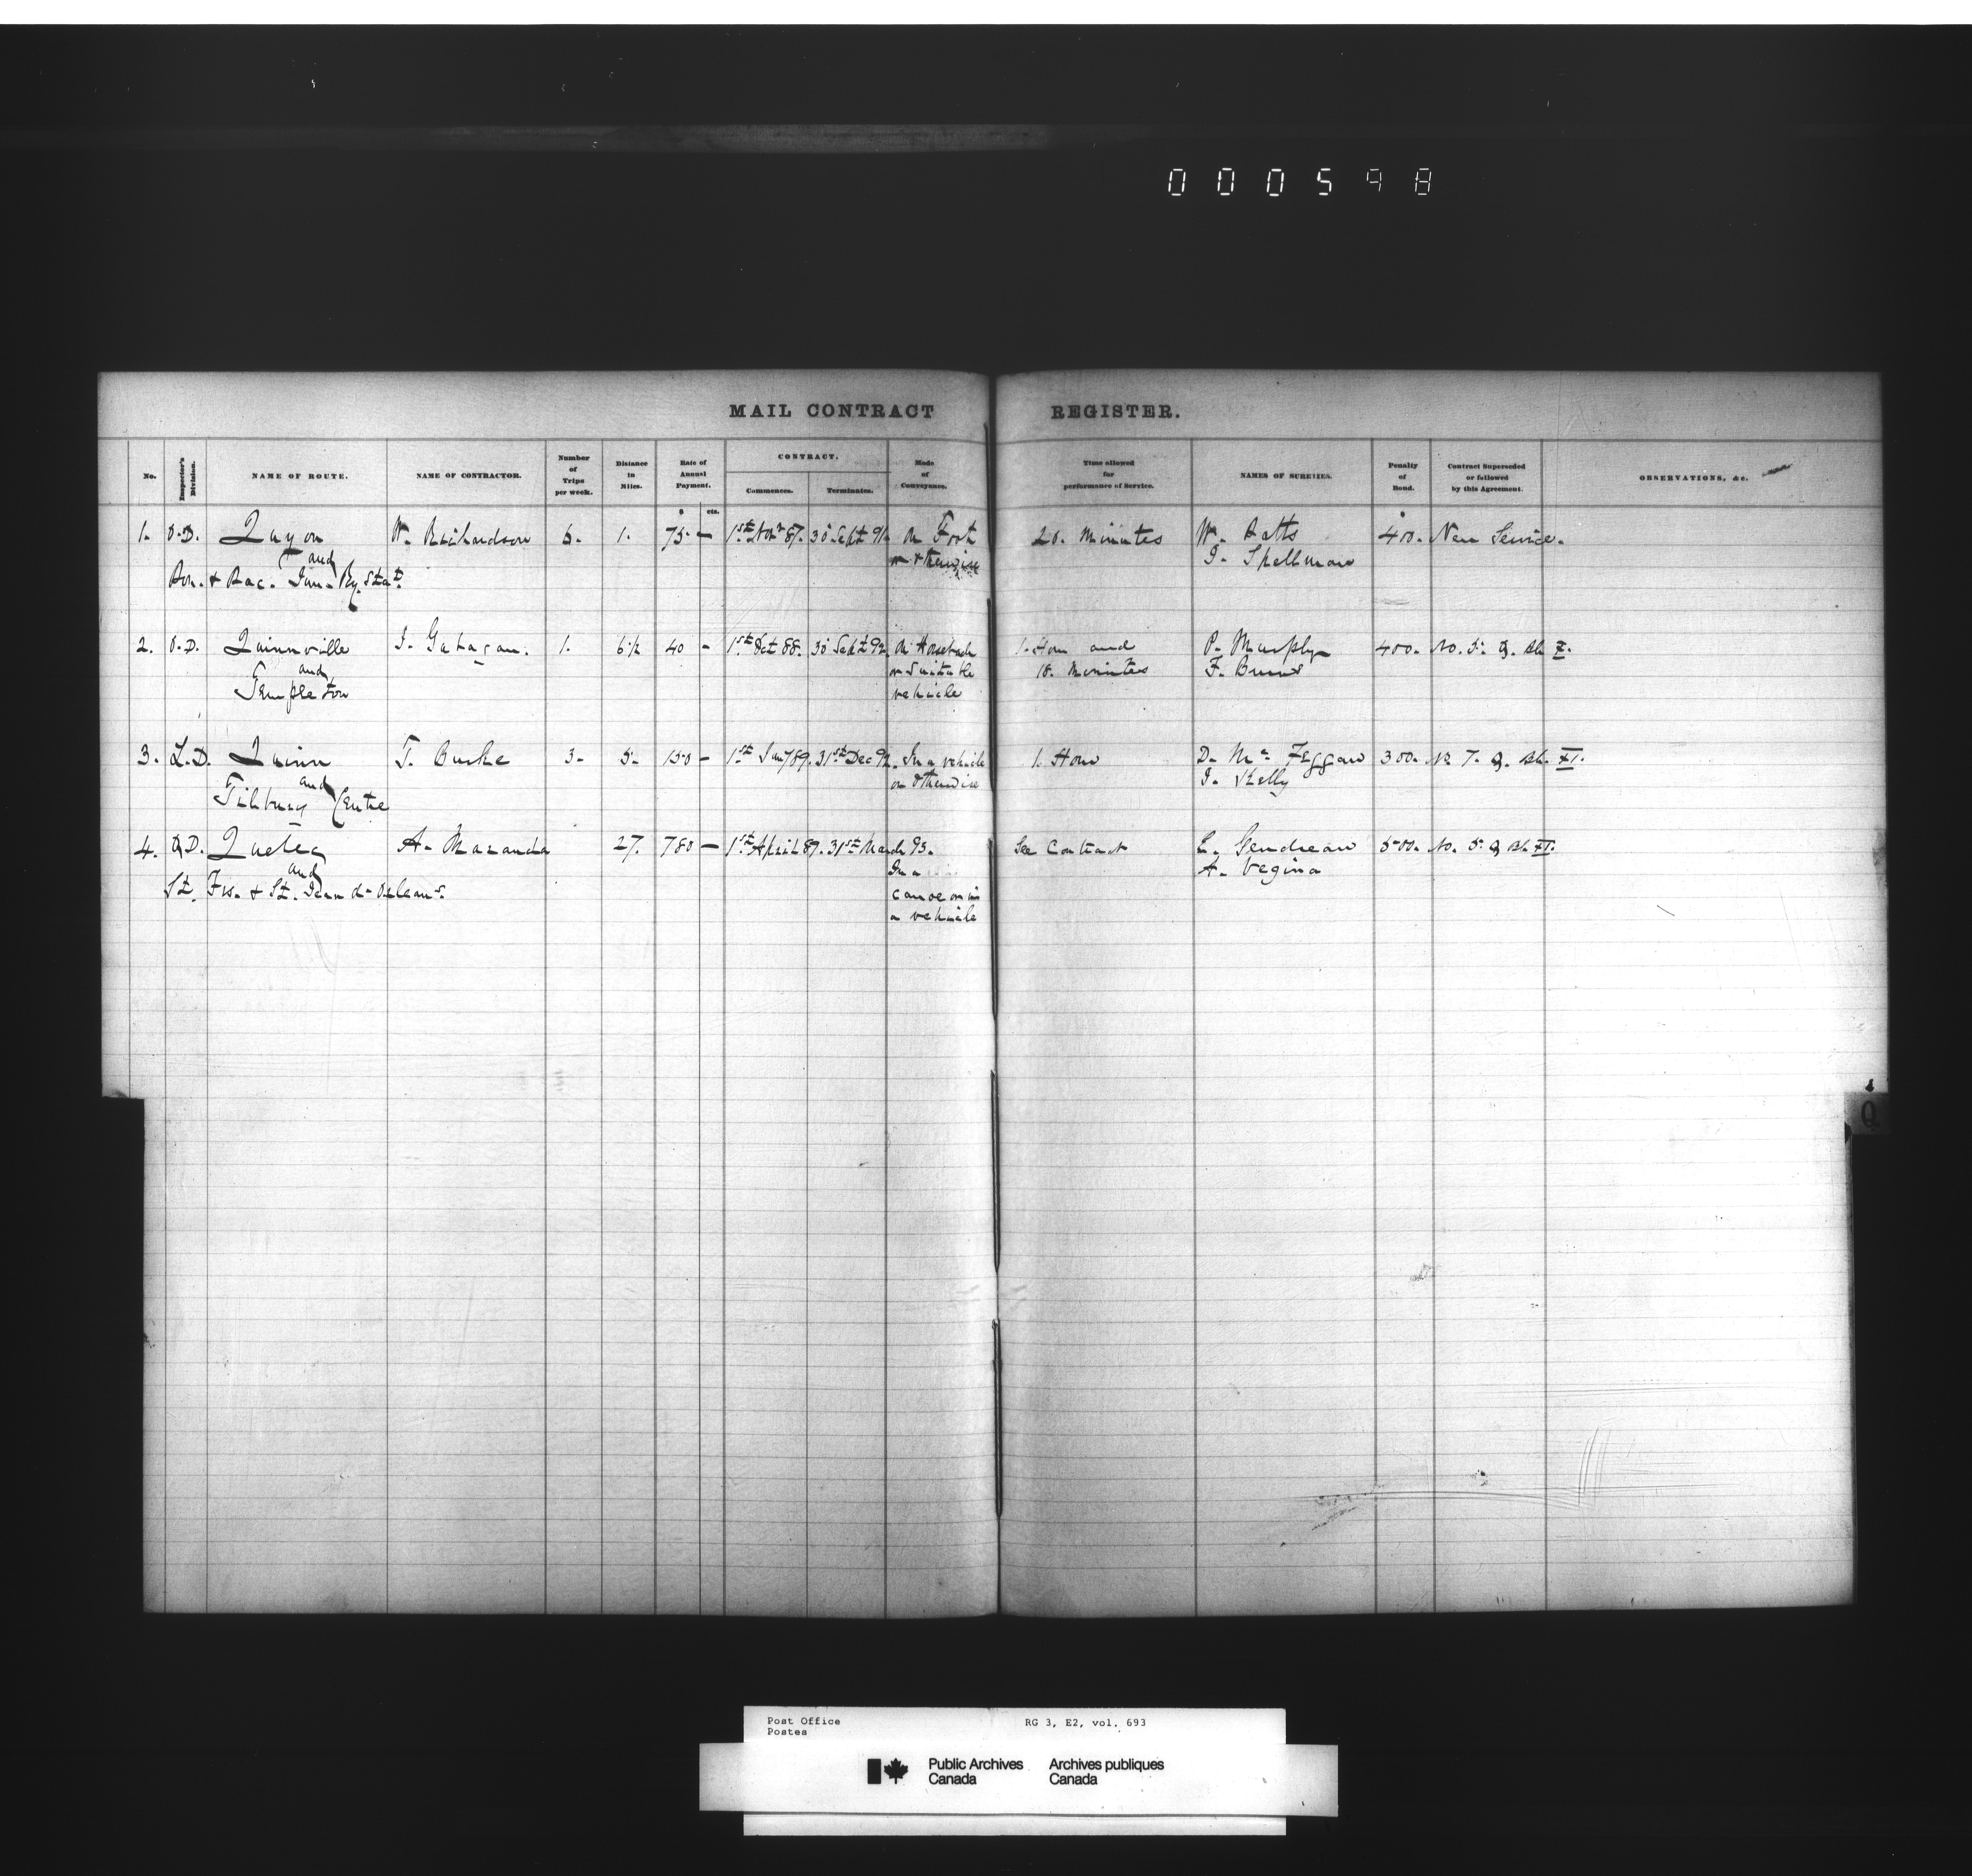 000598
MAIL CONTRACT REGISTER.
No. Inspector's Division. NAME OF ROUTE. NAME OF CONTRACTOR. Number of Trips per week. Distance in Miles. Rate of Annual Payment. CONTRACT. Commences. Terminates. Mode of Conveyance. Time allowed for performance of Service. NAMES OF SURETIES. Penalty of Bond. Contract Superseded or followed by this Agreement. OBSERVATIONS, &c.
$ cts.
1. O.D. Quyon W. Richardson 6. 1. 75. – 1st Novr 87. 30 Sept 91. On Foot 20. Minutes W. $ 400. New Service.
and or otherwise J. Spellman
Pon. & Pac. Junc. Ry. Statn.
2. O.D. Quinnville J. Gahagan. 1. 6½ 40 – 1st Oct 88. 30 Sept 92. On Horseback 1. Hour and P. Murphy 400. No. Q. Bk X.
and or Suitable 10. Minutes F. Burns
Templeton vehicle
3. L.D. Quinn T. Burke 3. 5. 150 – 1st Jany 89. 31st Dec 92. In a vehicle 1. Hour D. 300. No 7. Q. Bk. XI.
and or otherwise J. Kelly
Tilbury Centre
4. Q.D. Quebec A. Maranda 27. 780 – 1st April 89. 31st March 93. See Contract E. Gendreau 500. No. 5. Q Bk XI.
and In a A. Vegina
St. Frs. & St. Jean d'Orleans. canoe or in
a vehicle
Q
Post Office RG 3, E2, vol. 693
Postes
Public Archives Archives publiques
Canada Canada